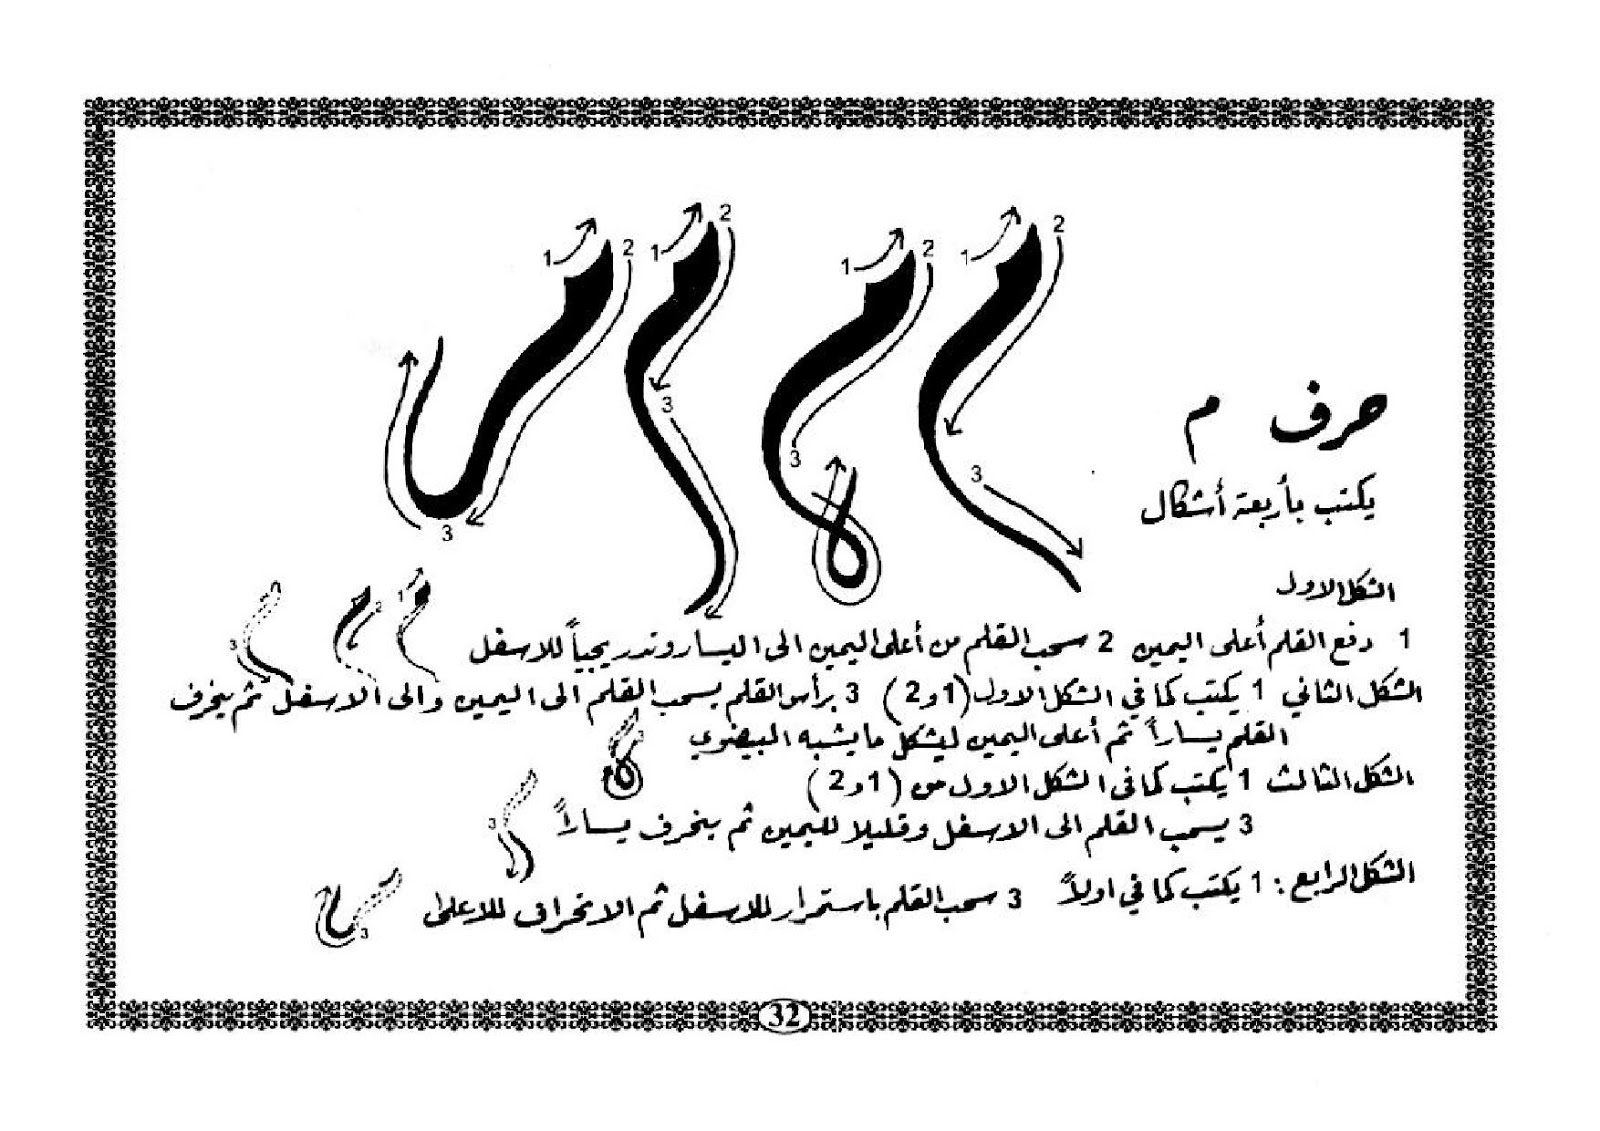 1 2 1 2 1 2 1 2
3 3 3 3
حرف م
يكتب بأربعة أشكال
الشكل الاول
1 2 3
1 دفع القلم أعلى اليمين 2 سحب القلم من أعلى اليمين الى اليسار وتدريجياً للاسفل
الشكل الثاني 1 يكتب كما في الشكل الاول (1و2) 3 برأس القلم يسحب القلم الى اليمين والى الاسفل ثم ينحرف
القلم يساراً ثم أعلى اليمين ليشكل مايشبه البيضوي
الشكل الثالث 1 يكتب كما في الشكل الاول من (1و2)
3 يسحب القلم الى الاسفل وقليلا لليمين ثم ينحرف يساراً 3
الشكل الرابع: 1 يكتب كما في اولاً 3 سحب القلم باستمرار للاسفل ثم الانحراف للاعلى 3
32